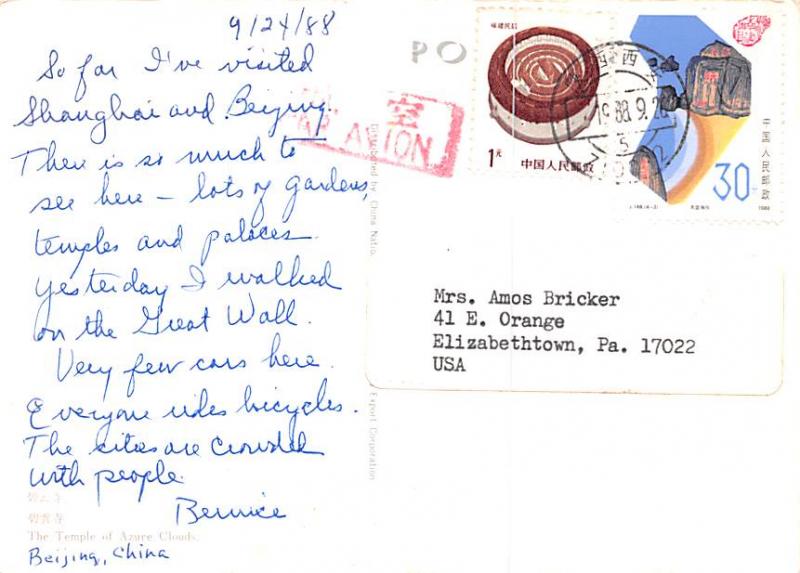 9/24/88
So far I've visited
Shanghai and Beijing.
There is so much to
see here - lots of gardens,
temples and palaces.
Yesterday I walked
on the Great Wall.
Very few cars here.
Everyone rides bicycles.
The cities are crowded
with people.
Bernice
碧云寺
碧雲寺
The Temple of Azure Clouds.
Beijing, China
Distributed by China Natio
Export Corporation
PO
空
AVION
福建民居
1元
中国人民邮政
西
1988.9.2
5
30
中国人民邮政
1988
Mrs. Amos Bricker
41 E. Orange
Elizabethtown, Pa. 17022
USA